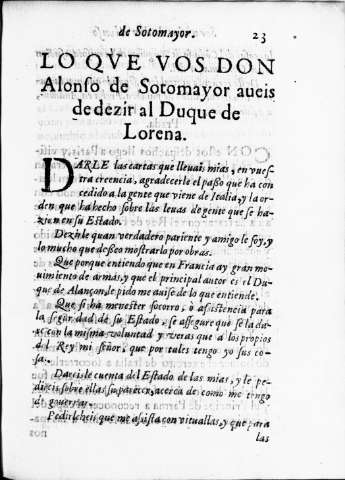 de Sotomayor. 23
LO QVE VOS DON
Alonso de Sotomayor aueis
de dezir al Duque de
Lorena.
DARLE las cartas que lleuais mias, en vues-
tra creencia, agradecerle el passo que ha con
cedido a la gente que viene de Italia, y la or-
den que ha hecho sobre las leuas de gente que se ha-
zen en su Estado.
Dezirle quan verdadero pariente y amigo le soy, y
lo mucho que desseo mostrarlo por obras.
Que porque entiendo que en Francia ay gran mo-
uimiento de armas, y que el principal autor es el Du
que de Alançon, le pido me auise de lo que entiende.
Que si ha menester socorro, ò assistencia para
la seguridad de su Estado, se assegure que se la da-
rè con la misma voluntad y veras que a los propios
del Rey mi señor, que por tales tengo yo sus co-
sas.
Dareisle cuenta del Estado de las mias, y le pe-
direis sobre ellas su parecer, acerca de como me tengo
de gouernar.
Pedirleheis que me assista con vituallas, y que para
las